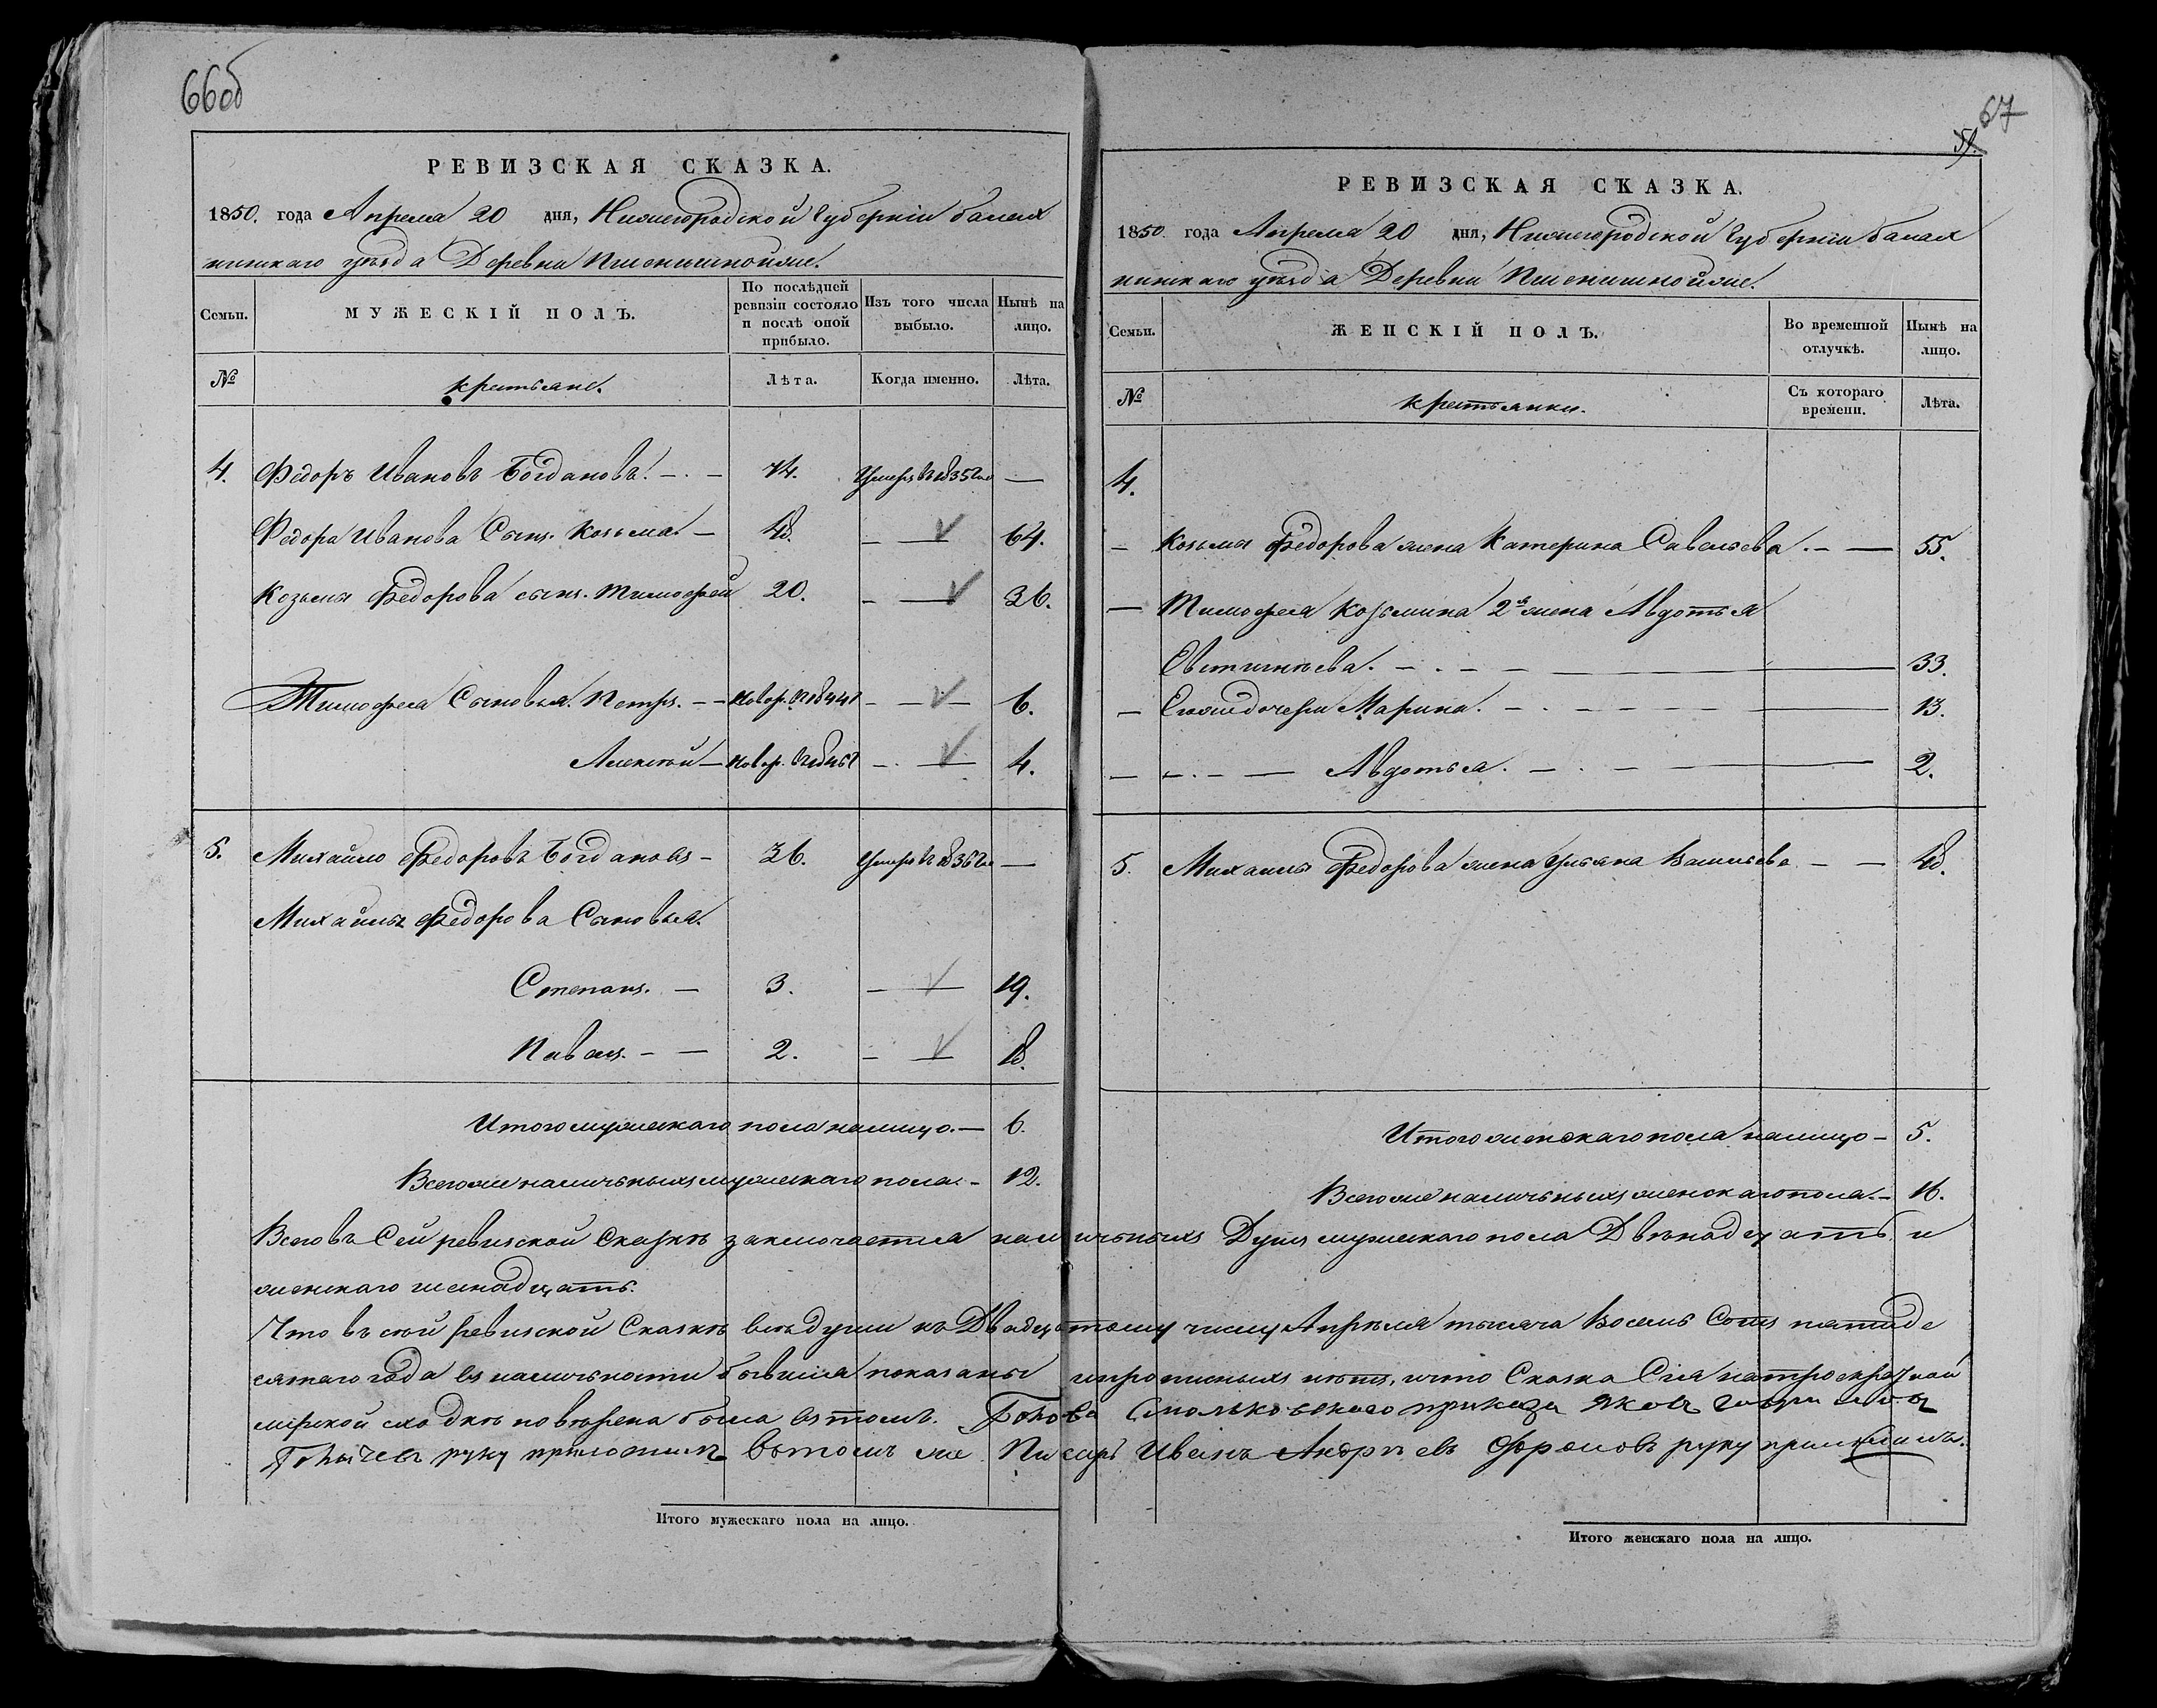 66об
РЕВИЗСКАЯ СКАЗКА.
1850. года Апреля 20 дня, Нижегородской Губерніи балах
нинскаго уѣзда Деревни Пшенишнойже.
Семьи.
МУЖЕСКІЙ ПОЛЪ.
По послѣдней ревизіи состояло и послѣ оной прибыло.
Изъ того числа выбыло.
Нынѣ на лицо.
№
крестьяне.
Лѣта.
Когда именно.
Лѣта.
4. Федоръ Ивановъ Богдановъ. 74. Умеръ въ 1835 —
Федора Иванова Сынъ. Козьма — 48. — 64.
Козьмы Федорова сынъ. Тимофей 20. — 36.
Тимофея Сыновья. Петръ. — новор. 1844 — 6.
Алексѣй — новор. 1846 — 4.
5. Михайло Федоровъ Богдановъ — 36. Умеръ 1836 —
Михайлы Федорова Сыновья.
Степанъ. — 3. — 19.
Павелъ. — 2. — 18.
Итого мужескаго пола налицо. — 6.
Всегоже наличныхъ мужескаго пола. — 12.
67
РЕВИЗСКАЯ СКАЗКА.
1850 года Апреля 20 дня, Нижегородской Губерніи балах
нинскаго уѣзда Деревни Пшенишнойже.
Семьи.
ЖЕНСКІЙ ПОЛЪ.
Во временной отлучкѣ.
Нынѣ на лицо.
№
крестьянки.
Съ котораго времени.
Лѣта.
4.
— Козьмы Федорова жена Катерина Савельева. — 55.
— Тимофея Козьмина 2я жена Авдотья
Евстигнѣева. — 33.
— Егоже дочери Марина. — 13.
— Авдотья. — 2.
5. Михайлы Федорова жена Ульяна Васильева — 48.
Итого женскаго пола налицо — 5.
Всегоже наличныхъ женскаго пола. — 16.
Всего въ Сей ревизской Сказкѣ заключается наличныхъ Душъ мужескаго пола Двѣнадцать и
женскаго шеснадцать.
Что въ сей ревизской Сказкѣ всѣ души къ Двадцатому числу Апрѣля тысяча Восемь Сотъ пятиде
сятаго года въ наличности бывшія показаны и прописныхъ нѣтъ, и что Сказка Сія на
мирской сходкѣ повѣрена была въ томъ. приказа Яковъ
руку приложилъ Вътомъ же Писарь Иванъ руку приложилъ.
Итого мужескаго пола на лицо.
Итого женскаго пола на лицо.